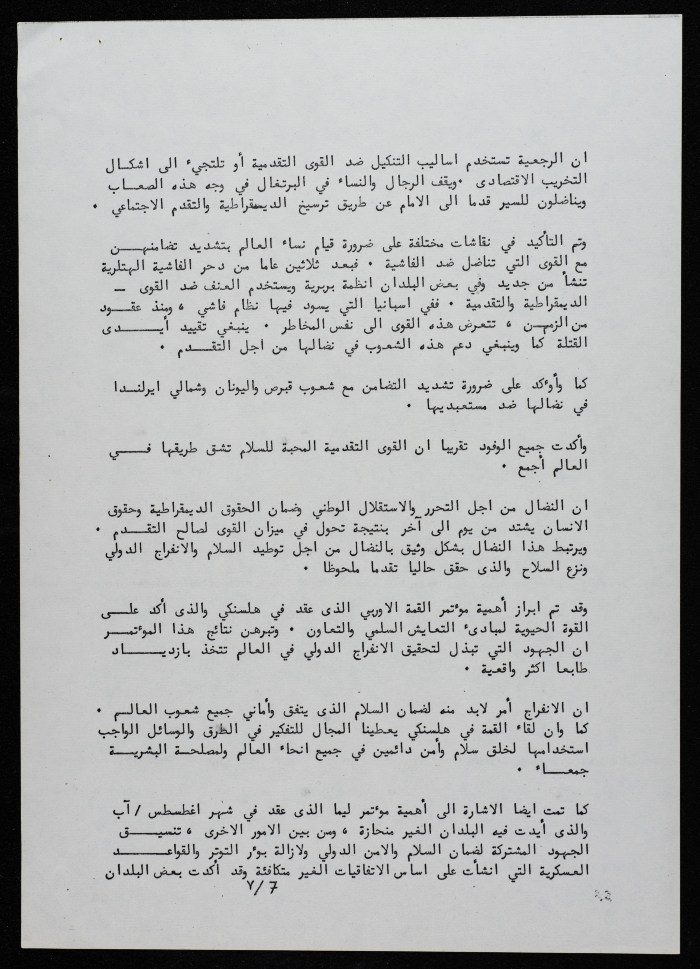 ان الرجعية تستخدم اساليب التنكيل ضد القوى التقدمية أو تلتجيء الى اشكـال
التخريب الاقتصادى ٠ ويقف الرجال والنساء في البرتغال في وجه هذه الصعـاب
ويناضلون للسير قدما الى الامام عن طريق ترسيخ الديمقراطية والتقدم الاجتماعي ٠
وتم التأكيد في نقاشات مختلفة على ضرورة قيام نساء العالم بتشديد تضامنهـــن
مع القوى التي تناضل ضد الفاشية ٠ فبعد ثلاثين عاما من دحر الفاشية الهتلرية
تنشأ من جديد وفي بعض البلدان انظمة بربرية ويستخدم العنف ضد القوى ــ
الديمقراطية والتقدمية ٠ ففي اسبانيا التي يسود فيها نظام فاشي ، ومنذ عقـــود
من الزمـن ، تتعرض هذه القوى الى نفس المخاطر ٠ ينبغي تقييد أيـــــدى
القتلة كما وينبغي دعم هذه الشعوب في نضالها من اجل التقـــدم ٠
كما وأوءكد على ضرورة تشديد التضامن مع شعوب قبرص واليونان وشمالي ايرلنـــدا
في نضالها ضد مستعبديها ٠
وأكدت جميع الوفود تقريبا ان القوى التقدمية المحبة للسلام تشق طريقها فـــــي
العالم أجمع ٠
ان النضال من اجل التحرر والاستقلال الوطني وضمان الحقوق الديمقراطية وحقوق
الانسان يشتد من يوم الى آخر بنتيجة تحول في ميزان القوى لصالح التقـــدم ٠
ويرتبط هذا النضال بشكل وثيق بالنضال من اجل توطيد السلام والانفراج الدولي
ونزع السلاح والذى حقق حاليا تقدما ملحوظا ٠
وقد تم ابراز أهمية موءتمر القمة الاوربي الذى عقد في هلسنكي والذى أكد علـــى
القوة الحيوية لمبادىء التعايش السلمي والتعاون ٠ وتبرهن نتائج هذا الموءتمــر
ان الجهود التي تبذل لتحقيق الانفراج الدولي في العالم تتخذ بازديـــــاد
طابعا اكثر واقعية ٠
ان الانفراج أمر لابد منه لضمان السلام الذى يتفق وأماني جميع شعوب العالــم ٠
كما وان لقاء القمة في هلسنكي يعطينا المجال للتفكير في الطرق والوسائل الواجب
استخدامها لخلق سلام وأمن دائمين في جميع انحاء العالم ولمصلحـة البشريـــة
جمعـــاء ٠
كما تمت ايضا الاشارة الى أهمية موءتمر ليما الذى عقد في شهر اغطسطس / آب
والذى أيدت فيه البلدان الغير منحازة ، ومن بين الامور الاخرى ، تنسيـــق
الجهود المشتركة لضمان السلام والامن الدولي ولازالة بوءر التوتر والقواعـــــد
العسكرية التي انشأت على اساس الاتفاقيات الغير متكافئة وقد أكدت بعض البلدان
٧/7